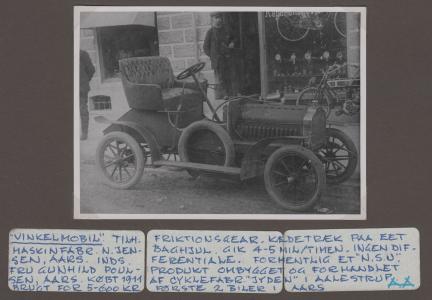 "VINKELMOBIL" TILH.
MASKINFABR. N. JEN-
SEN, AARS. INDS.
FRU GUNHILD POUL-
SEN, AARS. KØBT 1911
BRUGT FOR 5-600 KR.
FRIKTIONSGEAR. KÆDETRÆK PAA EET
BAGHJUL. GIK 4-5 MIL/TIMEN. INGEN DIF-
FERENTIALE. FORMENTLIG ET "N.S.U"
PRODUKT OMBYGGET OG FORHANDLET
AF CYKLEFABR. "JYDEN" I AALESTRUP.
FØRSTE 2 BILER I AARS